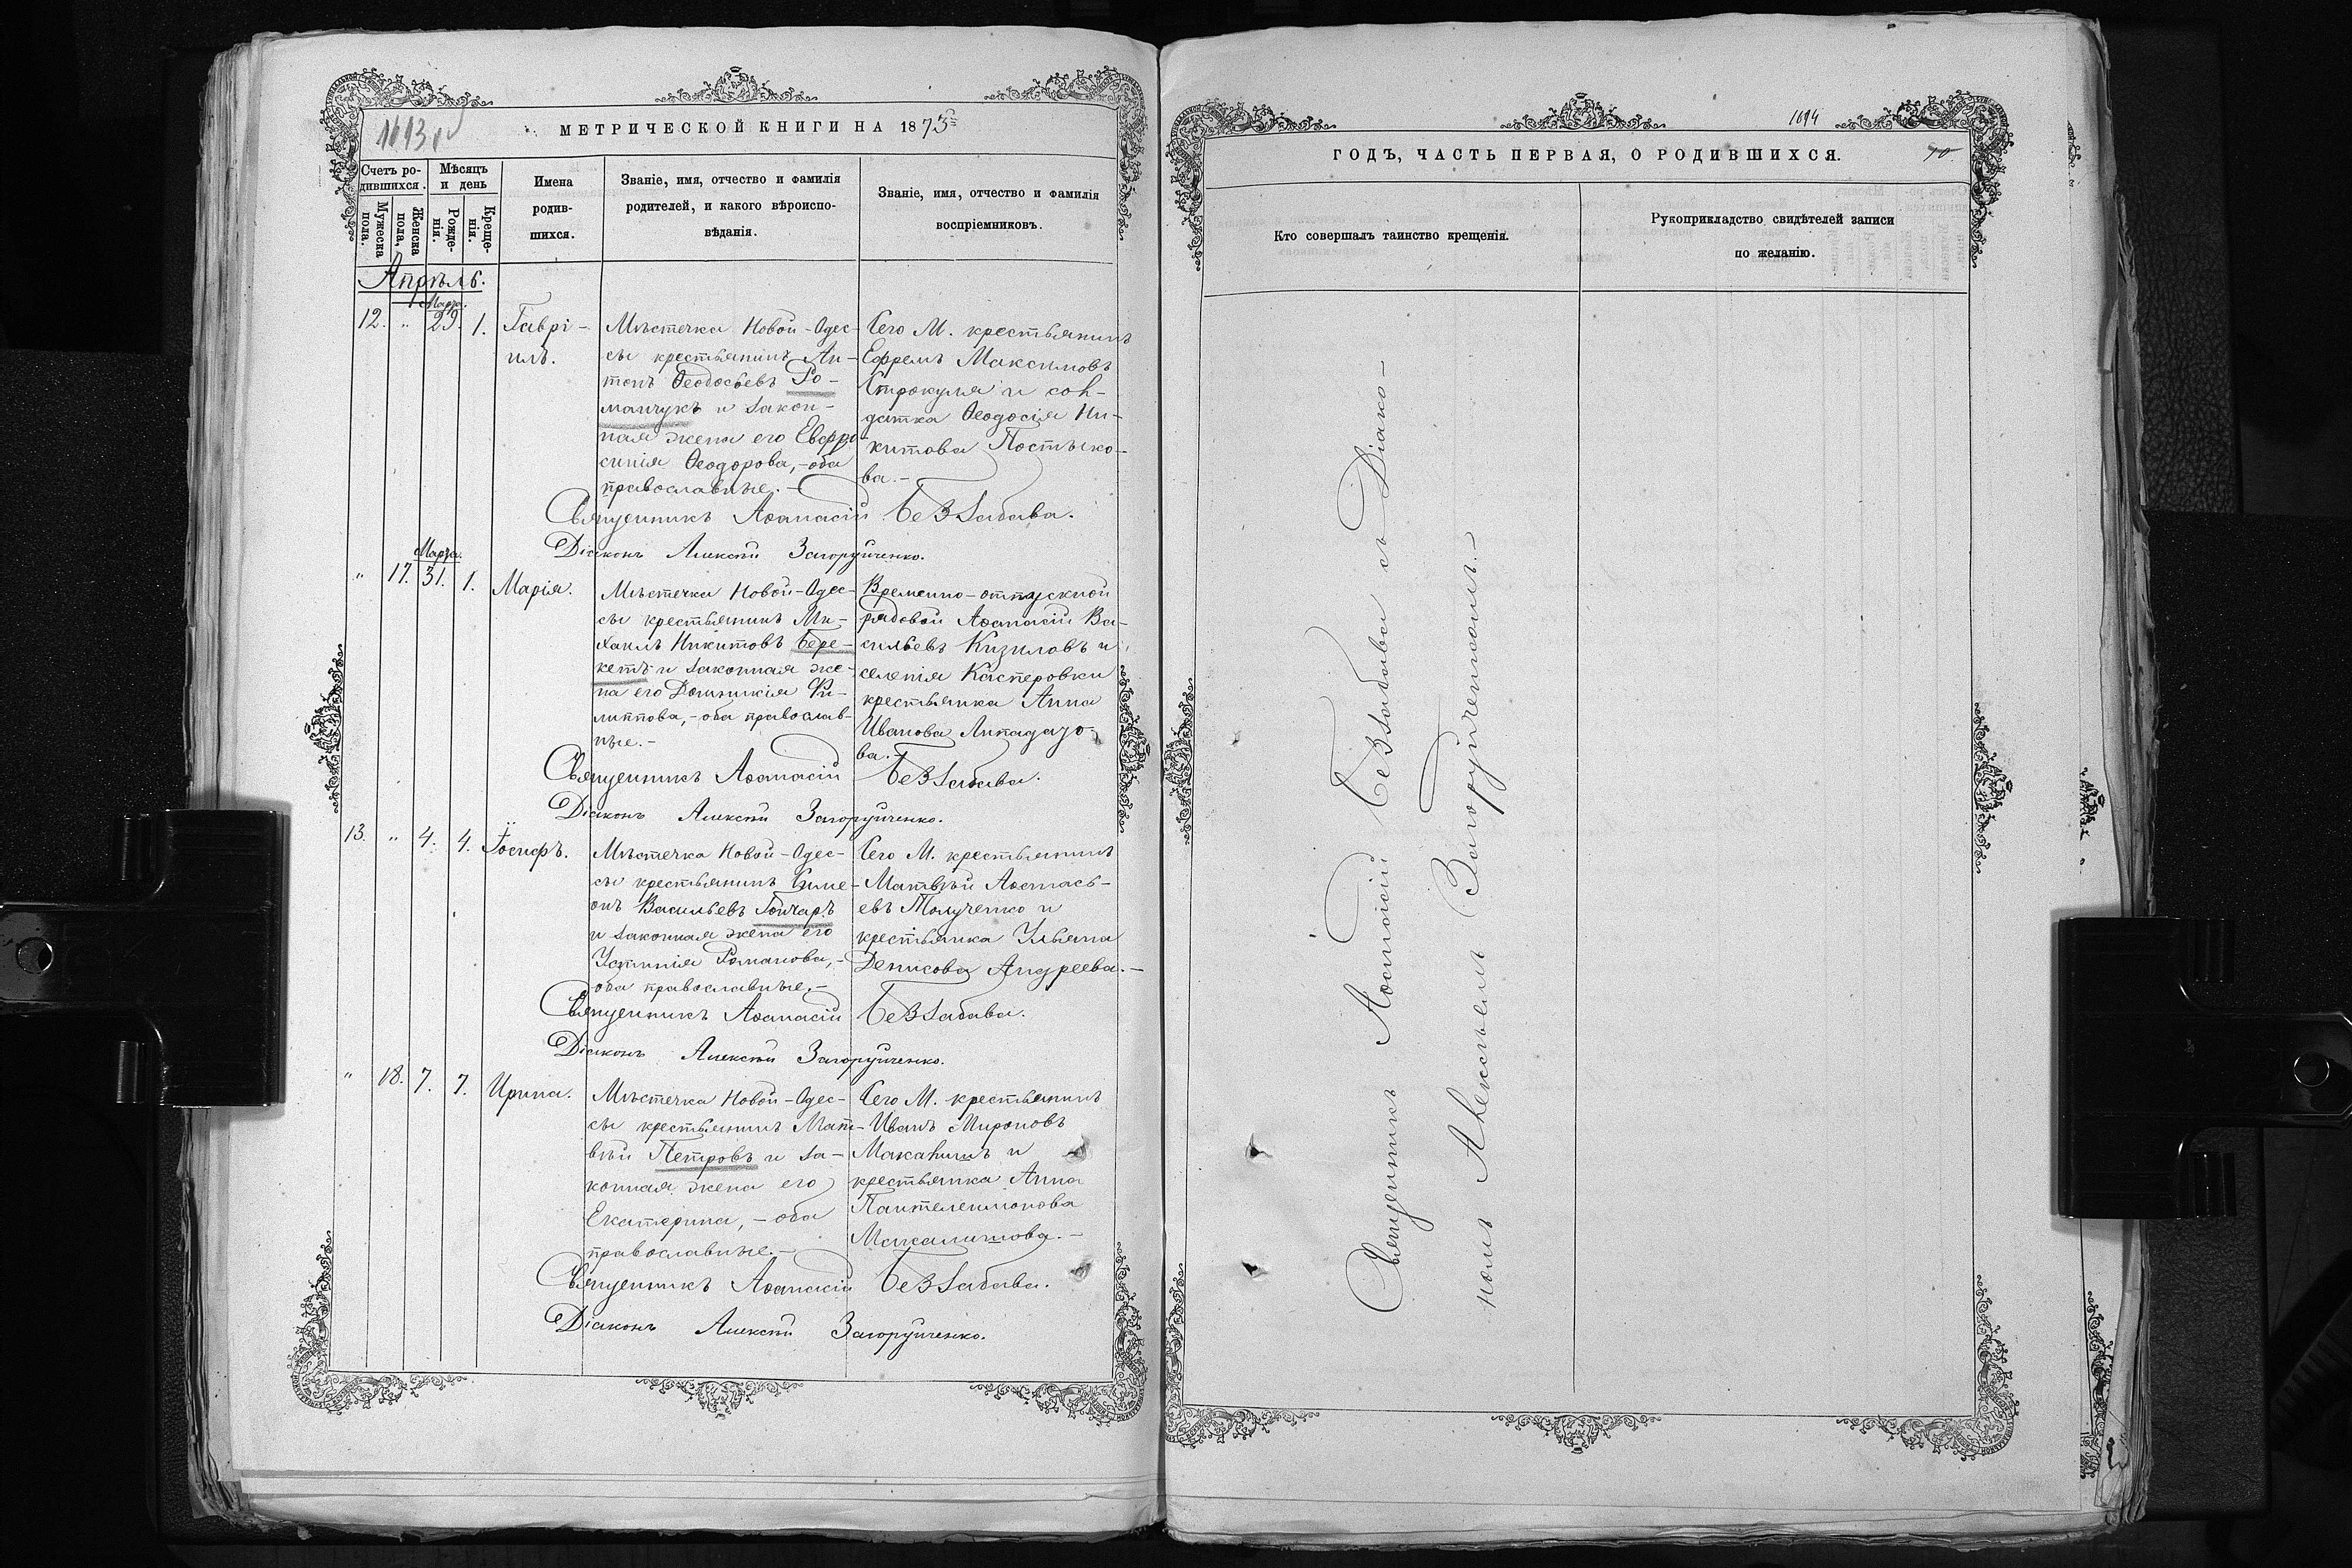 МЕТРИЧЕСКОЙ КНИГИ НА 1873
Счетъ ро-
дившихся.
Мѣсяцъ
и день
Мужеска
пола.
Женска
пола.
Рожде-
нія.
Креще-
нія.
Имена
родив-
шихся.
Званіе, имя, отчество и фамилія
родителей, и какого вѣроиспо-
вѣданія.
Званіе, имя, отчество и фамилія
воспріемниковъ.
Апрѣль.
Марта.
12. " 29. 1.
Гаврі-
илъ.
Мѣстечка Новой-Одес-
сы крестьянинъ Ан-
тонъ Ѳеодосьевъ Ро-
манчукъ и закон-
ная жена его Евфро-
синія Ѳеодорова,-оба
православные.-
Сего М. крестьянинъ
Ефремъ Максимовъ
Строкуля и сол-
датка Ѳеодосія Ни-
китова Постыко-
ва.-
Священникъ Аѳанасій Беззабава.
Діаконъ Алексѣй Загоруйченко.
Марта.
" 17. 31. 1.
Марія.
Мѣстечка Новой-Одес-
сы крестьянинъ Ми-
хаилъ Никитовъ Бере-
кетъ и законная же-
на его Домникія Фи-
липпова,-оба православ-
ные.-
Временно-отпускной
рядовой Аѳанасій Ва-
сильевъ Кизиловъ и
селенія Касперовки
крестьянка Анна
Иванова
ва.-
Священникъ Аѳанасій Беззабава.
Діаконъ Алексѣй Загоруйченко.
13. " 4. 4.
Іосифъ.
Мѣстечка Новой-Одес-
сы крестьянинъ Симе-
онъ Васильевъ Гончаръ
и законная жена его
Устинія Романова,-
оба православные.-
Сего М. крестьянинъ
Матвѣй Аѳанась-
евъ Толученко и
крестьянка Ульяна
Денисова Андреева.-
Священникъ Аѳанасій Беззабава.
Діаконъ Алексѣй Загоруйченко.
" 18. 7. 7.
Ирина.
Мѣстечка Новой-Одес-
сы крестьянинъ Мат-
вѣй Петровъ и за-
конная жена его
Екатерина,-оба
православные.-
Сего М. крестьянинъ
Иванъ Мироновъ
Макалишъ и
крестьянка Анна
Пантелеимонова
Макалишова.-
Священникъ Аѳанасій Беззабава.
Діаконъ Алексѣй Загоруйченко.
1694
ГОДЪ, ЧАСТЬ ПЕРВАЯ, О РОДИВШИХСЯ.
70.
Кто совершалъ таинство крещенія.
Рукоприкладство свидѣтелей записи
по желанію.
Священникъ Аѳанасій Беззабава съ Діако-
номъ Алексѣемъ Загоруйченкомъ.-